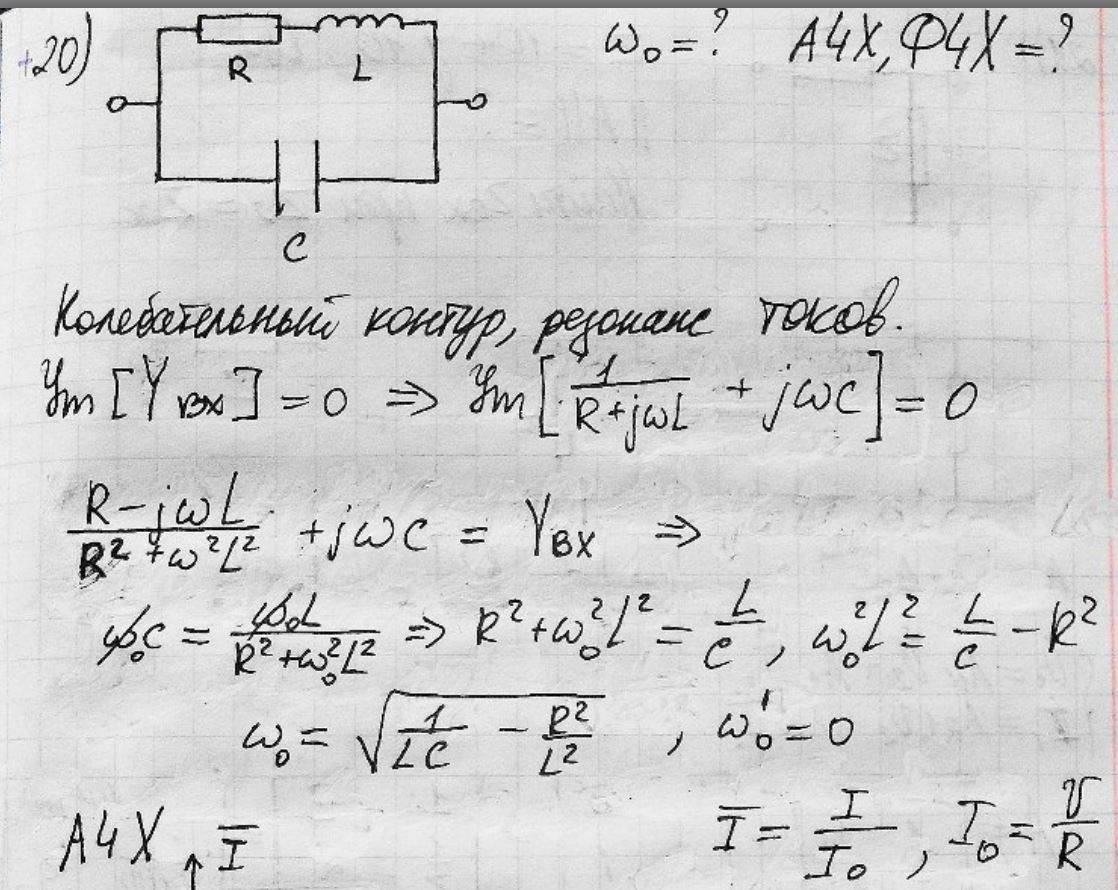 +20) R L ω₀ = ? АЧХ, ФЧХ = ?
C
Колебательный контур, резонанс токов.
Im [Y вх] = 0 ⇒ Im [1/(R+jωL) + jωC] = 0
(R - jωL)/(R² + ω²L²) + jωC = Y вх ⇒
ω₀C = ω₀L/(R² + ω₀²L²) ⇒ R² + ω₀²L² = L/C , ω₀²L² = L/C - R²
ω₀ = √(1/(LC) - R²/L²) , ω₀' = 0
АЧХ ↑ Ī Ī = I/I₀ , I₀ = U/R